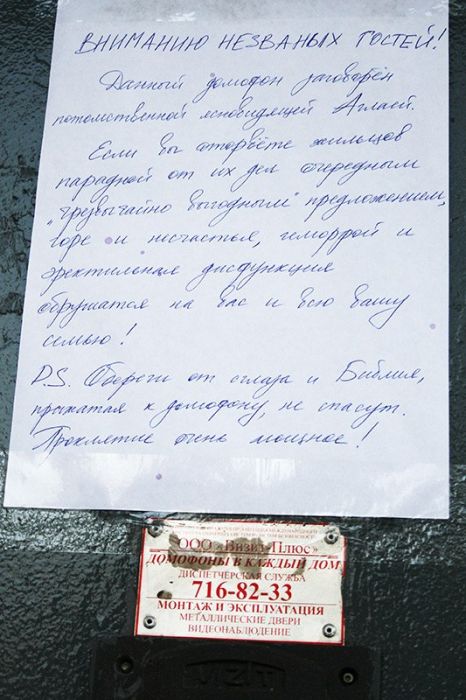 ВНИМАНИЮ НЕЗВАНЫХ ГОСТЕЙ!
Данный домофон заговорён
потомственной ясновидящей Аглаей.
Если вы оторвёте жильцов
парадной от их дел очередным
"чрезвычайно выгодным" предложением,
горе и несчастья, геморрой и
эректильная дисфункция
обрушатся на вас и всю вашу
семью!
P.S. Обереги от сглаза и Библия,
прижатая к домофону, не спасут.
Проклятие очень мощное!
ООО «Визит-Плюс»
ДОМОФОНЫ В КАЖДЫЙ ДОМ
ДИСПЕТЧЕРСКАЯ СЛУЖБА
716-82-33
МОНТАЖ И ЭКСПЛУАТАЦИЯ
МЕТАЛЛИЧЕСКИЕ ДВЕРИ
ВИДЕОНАБЛЮДЕНИЕ